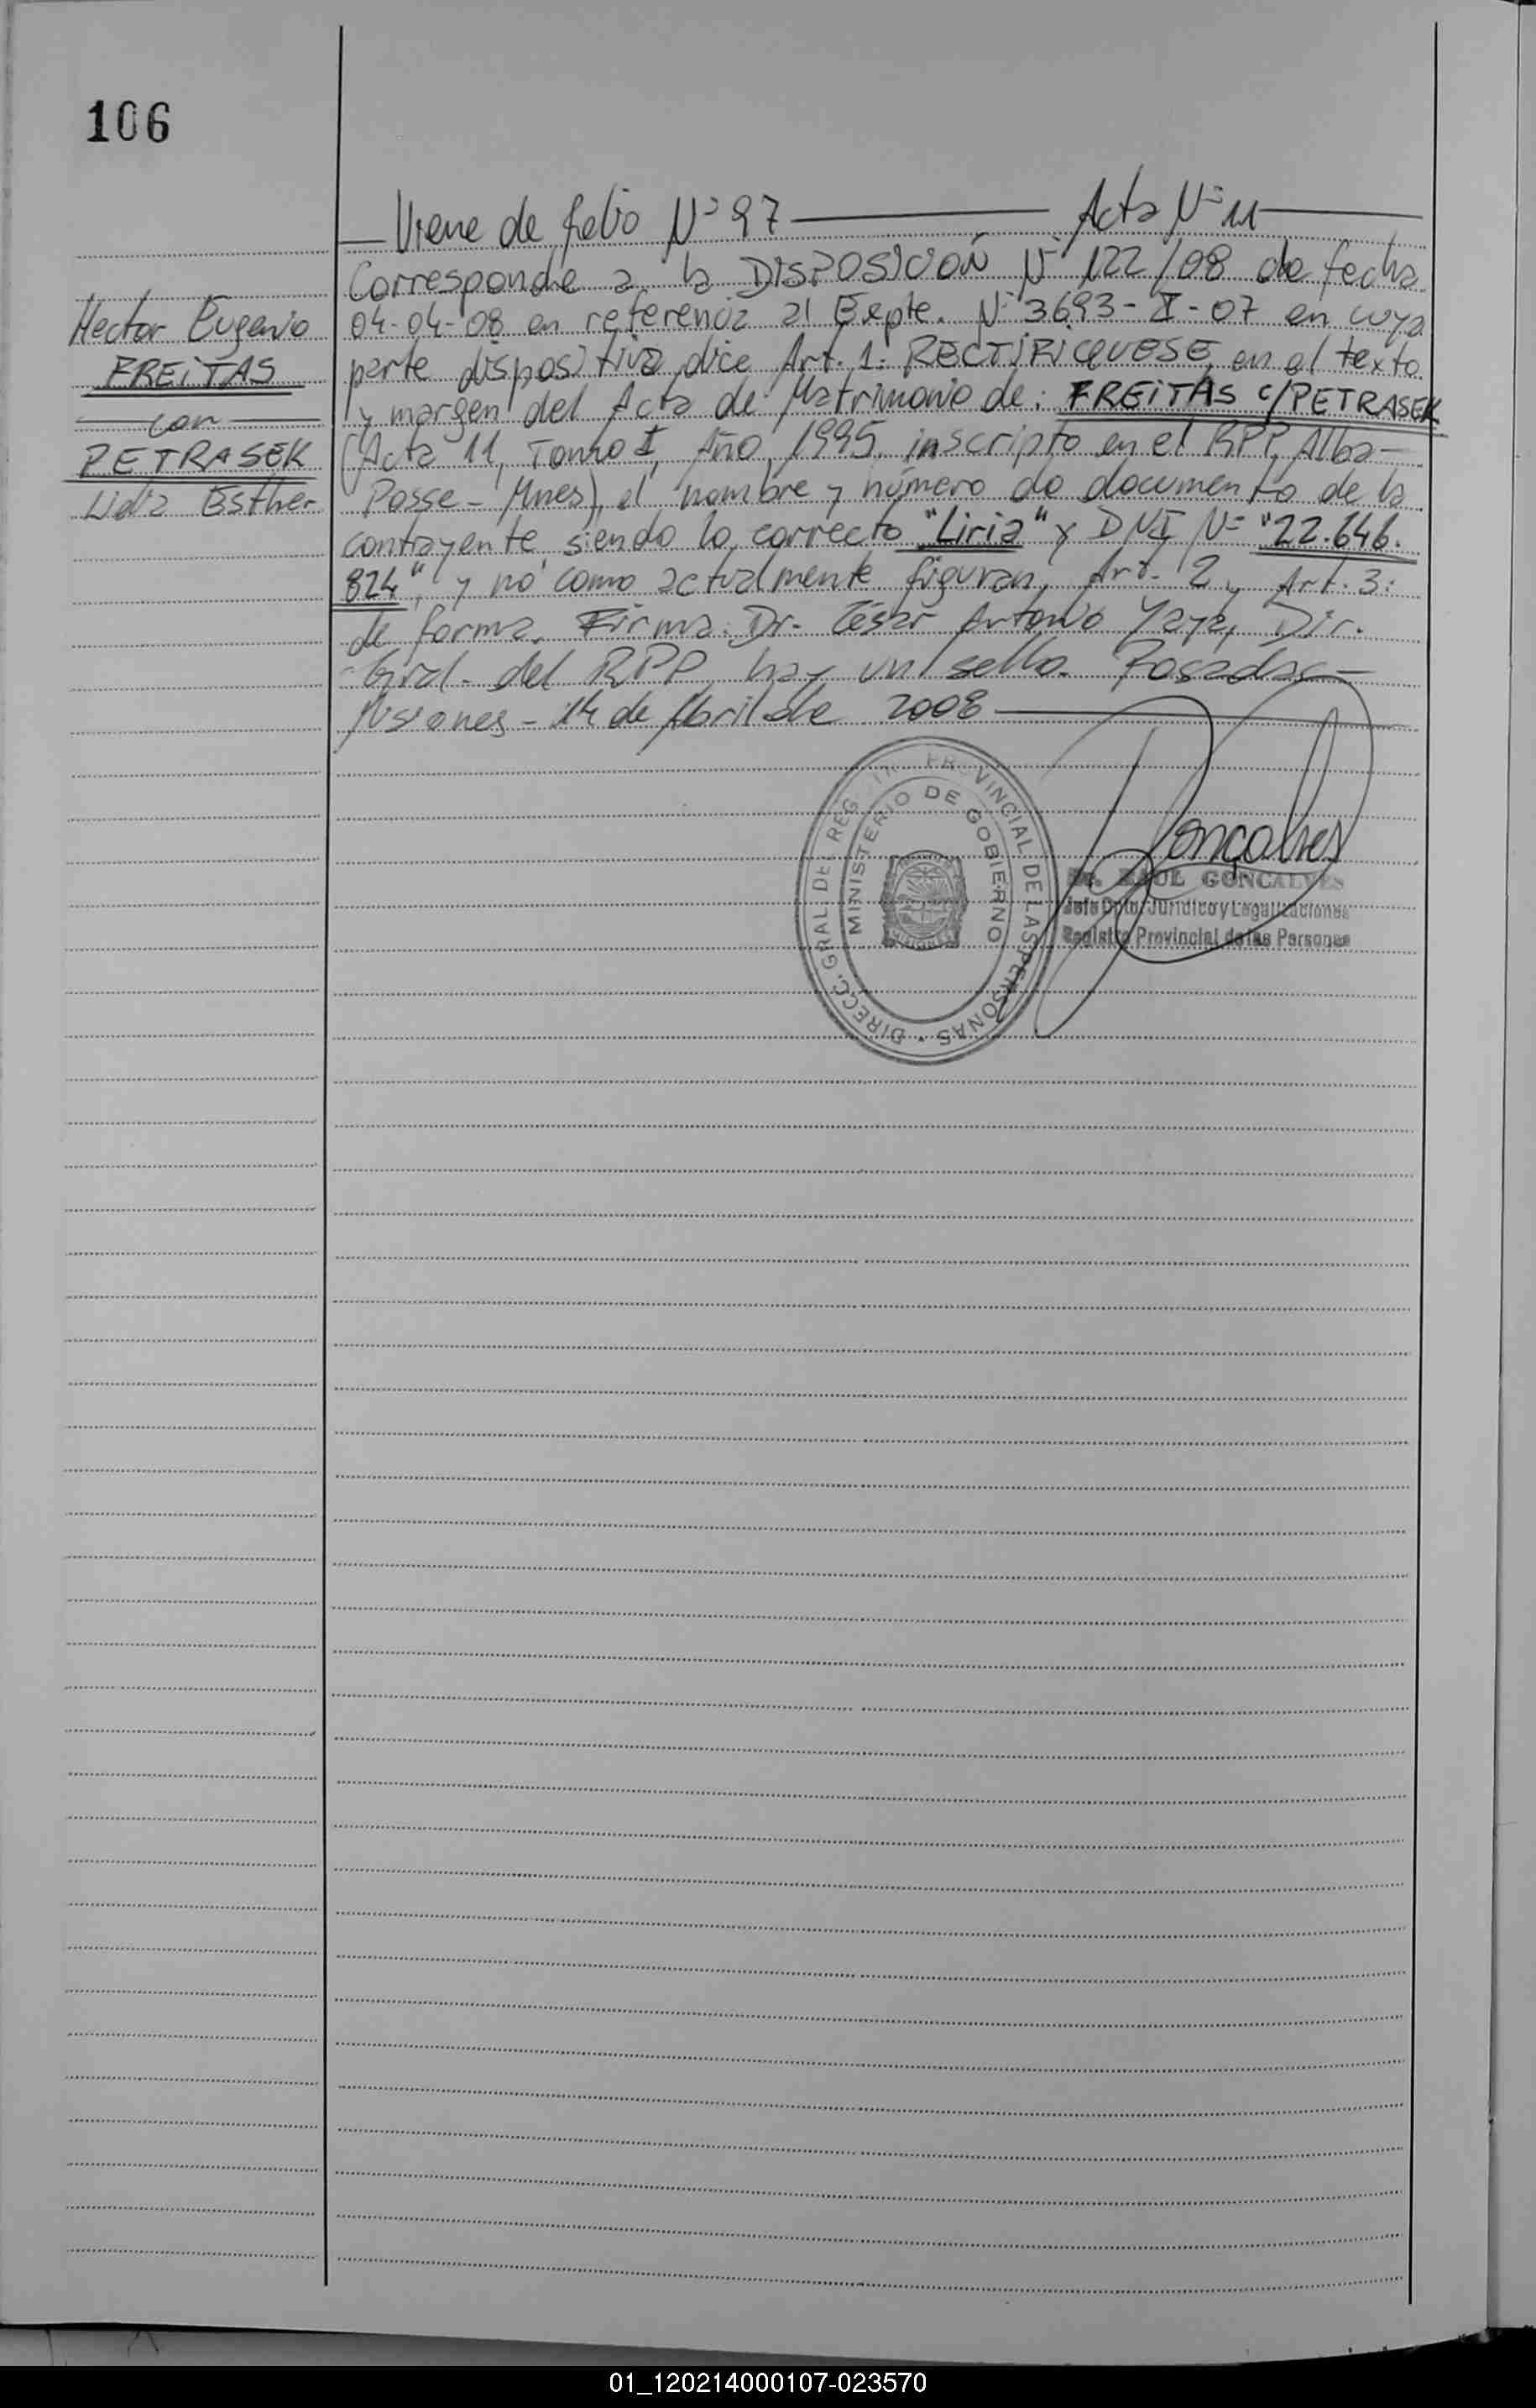 106
Viene de folio Nº 97 Acta Nº 11
Corresponde a la DISPOSICIÓN Nº 122/08 de fecha
04-04-08 en referencia al Expte. Nº 3693-I-07 en cuya
parte dispositiva dice Art. 1: RECTIFIQUESE, en el texto
y margen del Acta de Matrimonio de: FREITAS c/PETRASEK
(Acta 11, Tomo I, Año 1995, inscripto en el RPP, Alba-
Posse - Mnes), el nombre y número de documento de la
contrayente siendo lo correcto "Liria" y DNI Nº "22.646.
824", y no como actualmente figuran, Art. 2 y Art. 3:
de forma. Firma: Dr. César Antonio Yaya, Dir.
Gral. del RPP, hay un sello. Posadas-
Misiones - 14 de Abril de 2008
Hector Eugenio
FREITAS
con
PETRASEK
Lidia Esther
DIRECC. GRAL. DEL REG. PROVINCIAL DE LAS PERSONAS
MINISTERIO DE GOBIERNO
Gonçalves
Dr. RAUL GONCALVES
Jefe Dpto. Jurídico y Legalizaciones
Registro Provincial de las Personas
01_120214000107-023570